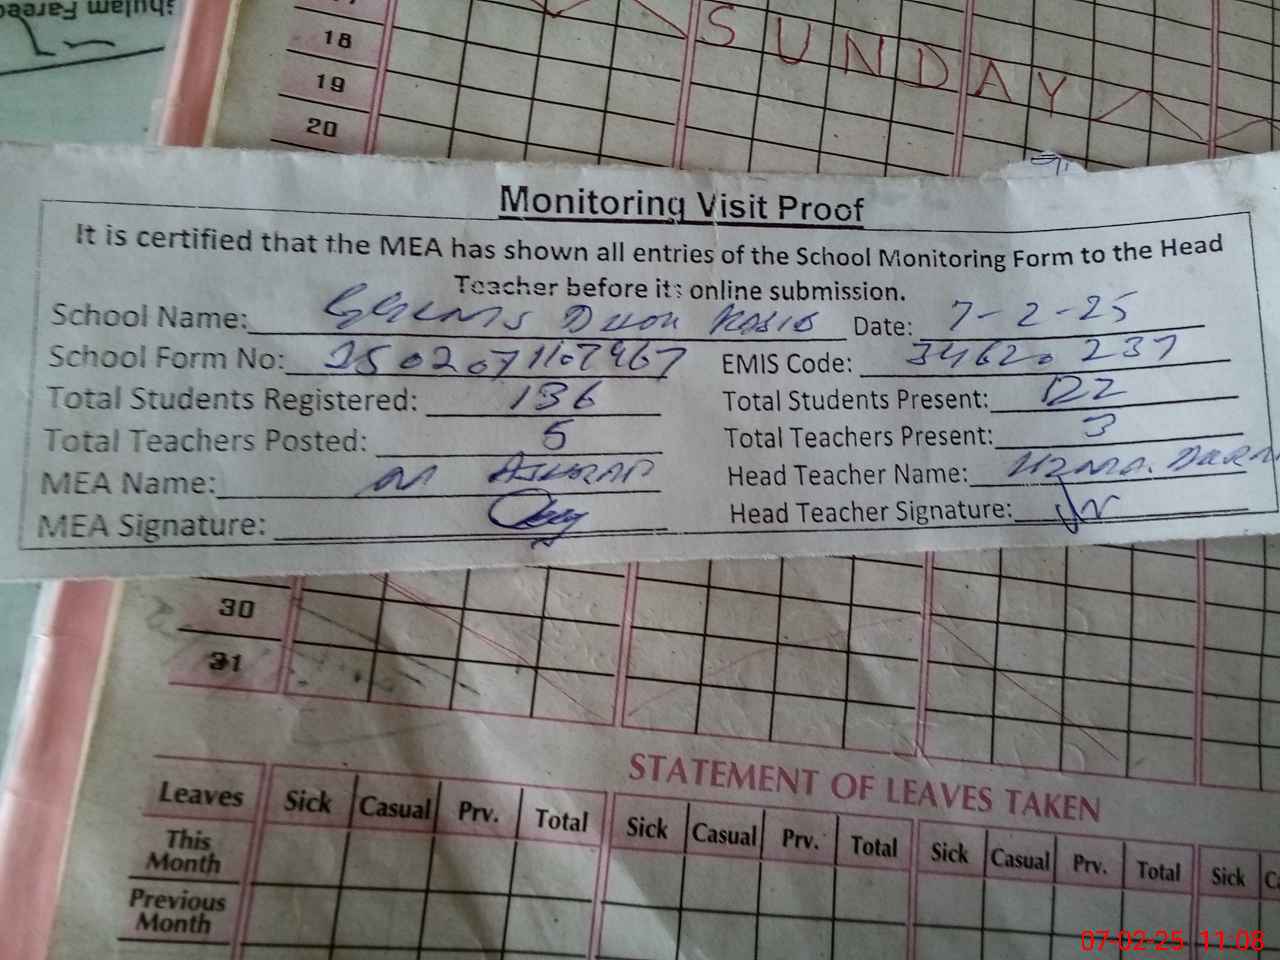 18
19
20
SUNDAY
Monitoring Visit Proof
It is certified that the MEA has shown all entries of the School Monitoring Form to the Head
Teacher before its online submission.
School Name: Date: 7-2-25
School Form No: EMIS Code: 34620237
Total Students Registered: 136 Total Students Present: 122
Total Teachers Posted: 5 Total Teachers Present: 3
MEA Name: M Ashraf Head Teacher Name: Uzma
MEA Signature: Head Teacher Signature:
30
31
STATEMENT OF LEAVES TAKEN
Leaves Sick Casual Prv. Total Sick Casual Prv. Total Sick Casual Prv. Total Sick
This Month
Previous Month
07-02-25 11:08